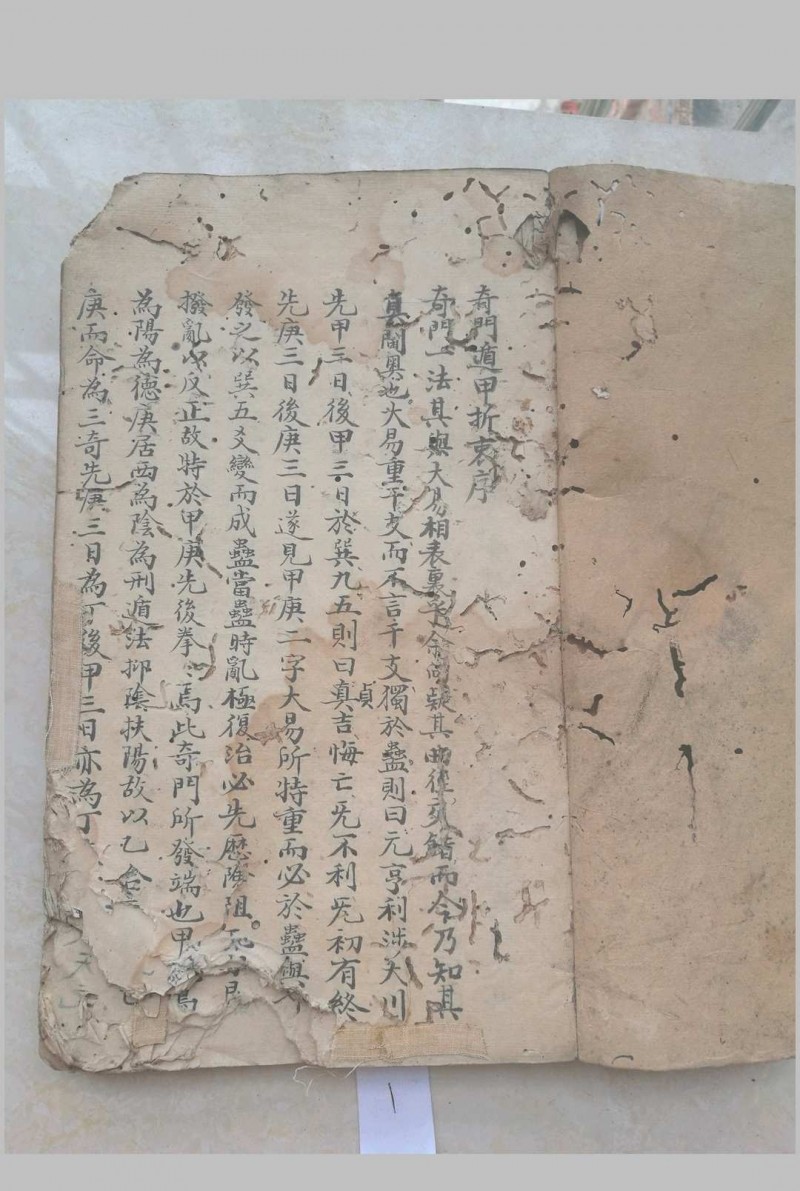 奇門遁甲折衷序
奇門一法其與大易相表裏乎余向疑其曲徑而今乃知其
真閫奧也大易重干支而不言干支獨於蠱則曰元亨利涉大川
先甲三日後甲三日於巽九五則曰真吉悔亡旡不利旡初有終
貞
先庚三日後庚三日遂見甲庚二字大易所特重而必於蠱與
發之以巽五爻變而成蠱當蠱時亂極復治必先歷險阻
撥亂以反正故特於甲庚先後拳〻焉此奇門所發端也甲
為陽為德庚居西為陰為刑遁法抑陰扶陽故以乙合
庚而命為三奇先庚三日為丁後甲三日亦為丁